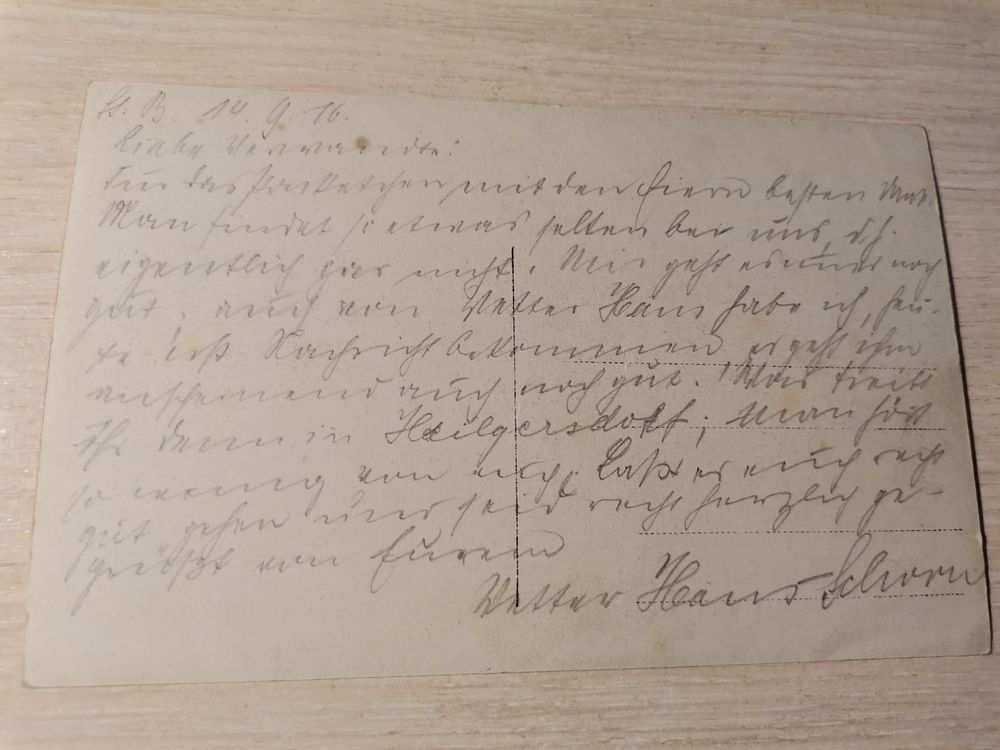 St. B. 14. 9. 16.
Liebe Verwandte!
Für das Packetchen mit den Eiern besten Dank.
Man findet so etwas selten bei uns, d. h.
eigentlich gar nicht. Mir geht es immer noch
gut. auch von Vetter Hans habe ich, heu-
te erst Nachricht bekommen, es geht ihm
anscheinend auch noch gut. Was treibt
Ihr denn in Heilgersdorf; Man hört
so wenig von euch. Laßt es euch recht
gut gehen und seid recht herzlich ge-
grüßt von Eurem
Vetter Hans Schorn